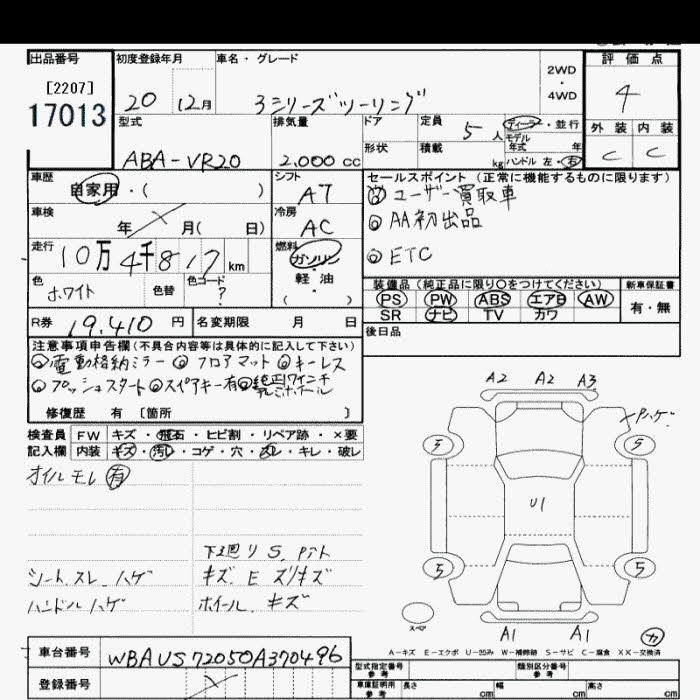 出品番号
[2207]
17013
初度登録年月
20 12月
車名・グレード
3シリーズツーリング
2WD
・
4WD
評価点
4
外装 内装
C C
型式
ABA-VR20
排気量
2,000 cc
ドア
形状
定員
5 人
積載
kg
ディーラー・並行
モデル
年式 年
ハンドル 左・右
車歴
自家用・( )
シフト
AT
車検
年 月( 日)
冷房
AC
走行
10万4千817 km
燃料
ガソリン
・
軽油
・
( )
色
ホワイト
色替
色コード
?
R券
19,410 円
名変期限 月 日
セールスポイント (正常に機能するものに限ります)
ユーザー買取車
AA初出品
ETC
装備品 (純正品に限り○をつけてください)
PS PW ABS エアB AW
SR ナビ TV カワ
新車保証書
有・無
後日品
注意事項申告欄 (不具合内容等は具体的に記入して下さい)
電動格納ミラー フロアマット キーレス
プッシュスタート スペアキー有 純正17インチ
アルミホイール
修復歴 有 [箇所 ]
検査員
記入欄
FW キズ・飛石・ヒビ割・リペア跡・×要
内装 キズ・汚レ・コゲ・穴・スレ・キレ・破レ
オイルモレ 有
下廻り S.
シート.スレ.ハゲ キズ. E
ハンドルハゲ ホイール.キズ
A2 A2 A3
ハゲ
5 5
U1
5 5
スペア
A1 A1
カ
A-キズ E-エクボ U-凹み W-補修跡 S-サビ C-腐食 XX-交換済
車台番号
WBAUS72050A370496
登録番号
型式指定番号
参考
類別区分番号
参考
車庫証明用
参考
長さ cm
幅 cm
高さ cm